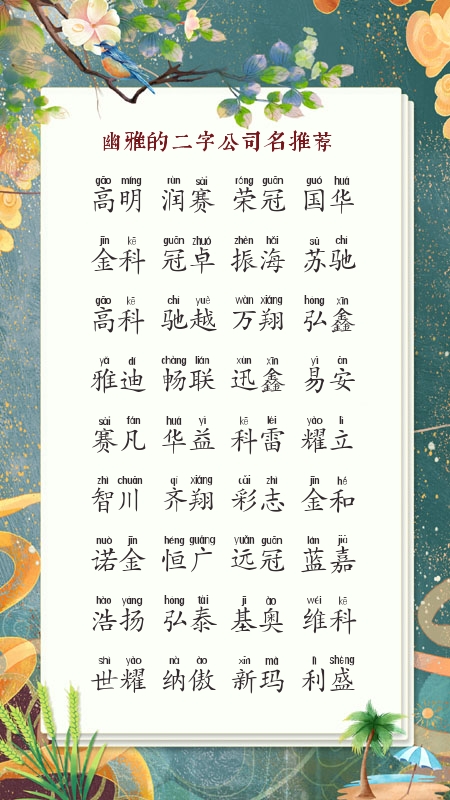 幽雅的二字公司名推荐
gāo míng rùn sài róng guān guó huá
高明 润赛 荣冠 国华
jīn kē guān zhuó zhèn hǎi sū chí
金科 冠卓 振海 苏驰
gāo kē chí yuè wàn xiáng hóng xīn
高科 驰越 万翔 弘鑫
yǎ dí chàng lián xùn xīn yì ān
雅迪 畅联 迅鑫 易安
sài fán huá yì kē léi yào lì
赛凡 华益 科雷 耀立
zhì chuān qí xiáng cǎi zhì jīn hé
智川 齐翔 彩志 金和
nuò jīn héng guǎng yuǎn guān lán jiā
诺金 恒广 远冠 蓝嘉
hào yáng hóng tài jī ào wéi kē
浩扬 弘泰 基奥 维科
shì yào nà ào xīn mǎ lì shèng
世耀 纳傲 新玛 利盛